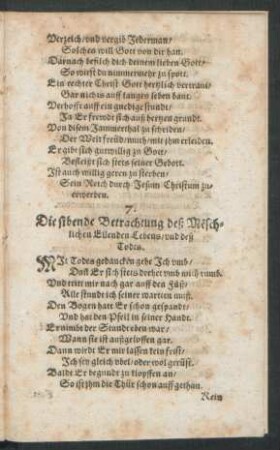 Verzeich/vnd vergib Jederman/
Solchen will Gott von dir han.
Därnach befilch dich deinem lieben Gott/
So wirst du nimmermehr zu spott.
Ein rechter Christ Gott hertzlich vertraut/
Gar nichts auff langes leben baut.
Verhofft auff ein gnedige stundt/
In Er frewdt sich auß hertzen grundt.
Von disem Jammerthal zu scheiden/
Der Welt frewd/muh/mit ihm erleiden.
Er gibt sich gutwillig zu Gott/
Befleist sich stets seiner Gebott.
Ist auch willig geren zu sterben/
Sein Reich durch Jesum Christum zu-
ererben.
7.
Die sibende Betrachtung deß Mensch-
lichen Ellenden Lebens/vnd deß
Todes.
MIt Todes gedancken gehe Ich vmb/
Dañ Er sich stets drehet vmb mich rumb.
Vnd tritt mir nach gar auff den Füß/
Alle stund ich seiner warten müß.
Den Bogen hatt Er schon gespandt/
Vnd hat den Pfeil in seiner Handt.
Er nimbt der Stundreben war/
Wann sie ist außgeloffen gar.
Dann wirdt Er mir lassen kein frist/
Ich sey gleich vbel/oder wol gerüst.
Baldt Er begundt zu klopffen an/
So ist ihm die Thür schon auff gethan.
Rein